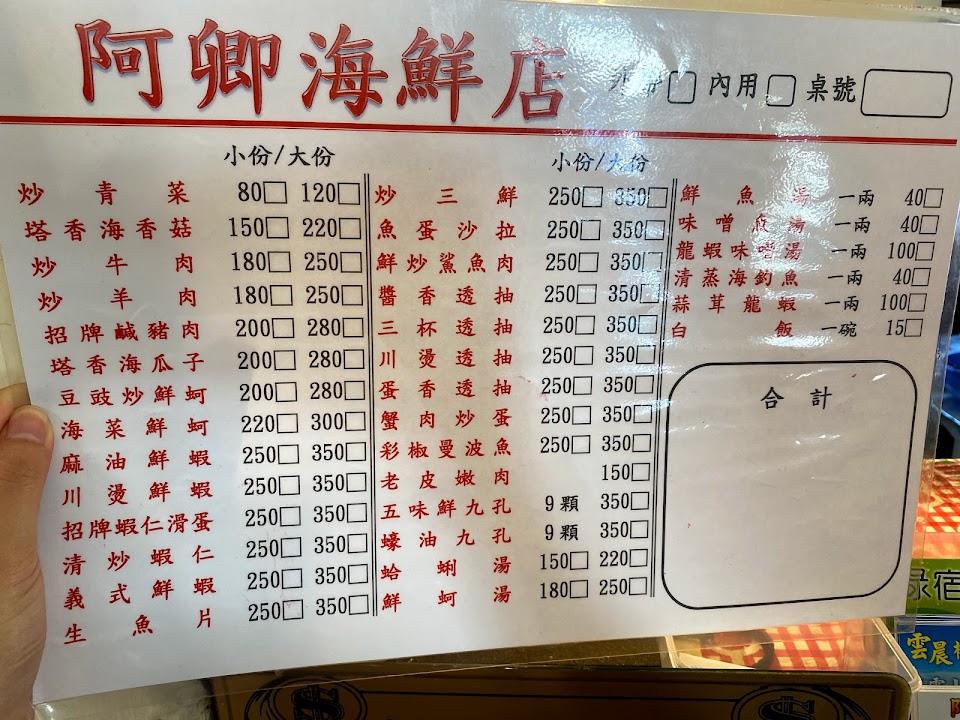 阿卿海鮮店
內用□ 桌號
小份/大份
炒青菜 80□ 120□
塔香海香菇 150□ 220□
炒牛肉 180□ 250□
炒羊肉 180□ 250□
招牌鹹豬肉 200□ 280□
塔香海瓜子 200□ 280□
豆豉炒鮮蚵 200□ 280□
海菜鮮蚵 220□ 300□
麻油鮮蝦 250□ 350□
川燙鮮蝦 250□ 350□
招牌蝦仁滑蛋 250□ 350□
清炒蝦仁 250□ 350□
義式鮮蝦 250□ 350□
生魚片 250□ 350□
小份/大份
炒三鮮 250□ 350□
魚蛋沙拉 250□ 350□
鮮炒鯊魚肉 250□ 350□
醬香透抽 250□ 350□
三杯透抽 250□ 350□
川燙透抽 250□ 350□
蛋香透抽 250□ 350□
蟹肉炒蛋 250□ 350□
彩椒曼波魚 250□ 350□
老皮嫩肉 150□
五味鮮九孔 9顆 350□
蠔油九孔 9顆 350□
蛤蜊湯 150□ 220□
鮮蚵湯 180□ 250□
鮮魚湯 一兩 40□
一兩 40□
龍蝦味噌湯 一兩 100□
清蒸海釣魚 一兩 40□
蒜茸龍蝦 一兩 100□
白飯 一碗 15□
合計
宿
雲晨